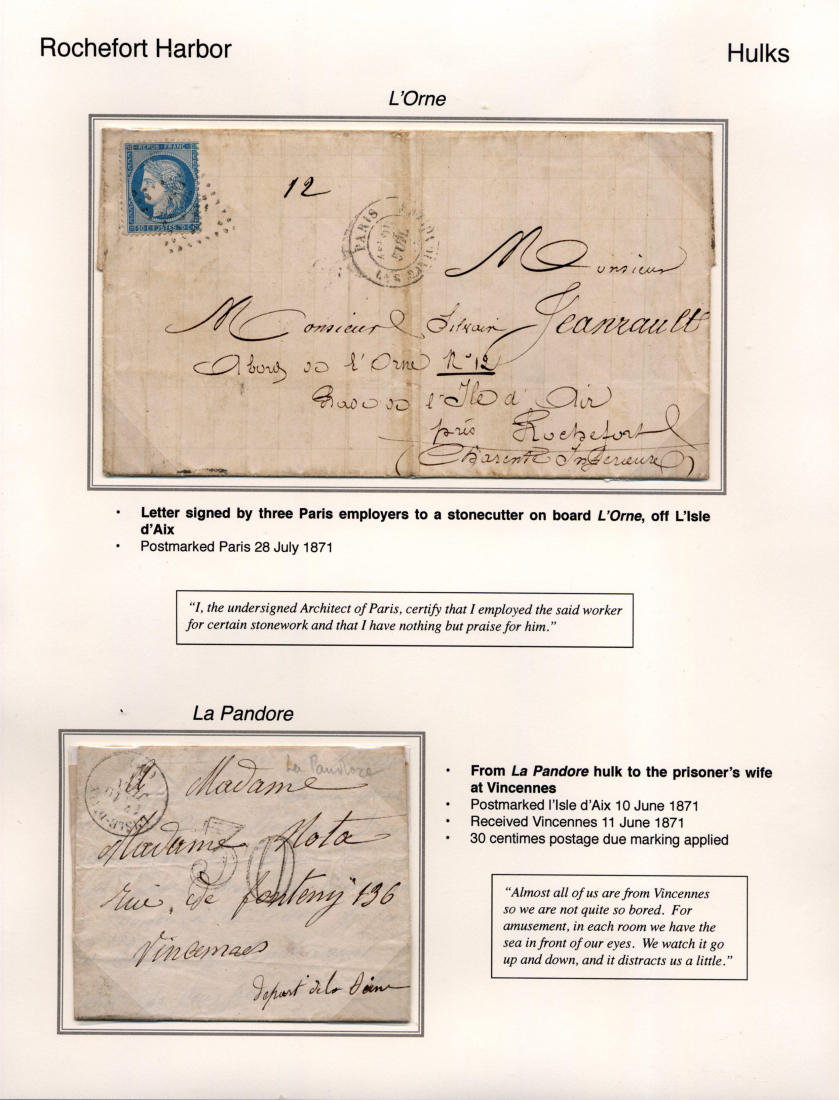 Rochefort Harbor
Hulks
L'Orne
REPUB FRANC
12
PARIS
Monsieur
Monsieur Silvain Jeanrault
Abord de l'Orne N° 12
Rade de l'Ile d'Air
près Rochefort
(Charente Inferieure)
· Letter signed by three Paris employers to a stonecutter on board L'Orne, off L'Isle
d'Aix
· Postmarked Paris 28 July 1871
"I, the undersigned Architect of Paris, certify that I employed the said worker
for certain stonework and that I have nothing but praise for him."
La Pandore
La Pandore
A Madame
Madame Mota
rue de fontenij 136
Vincennes
depart de la Seine
· From La Pandore hulk to the prisoner's wife
at Vincennes
· Postmarked l'Isle d'Aix 10 June 1871
· Received Vincennes 11 June 1871
· 30 centimes postage due marking applied
"Almost all of us are from Vincennes
so we are not quite so bored. For
amusement, in each room we have the
sea in front of our eyes. We watch it go
up and down, and it distracts us a little."